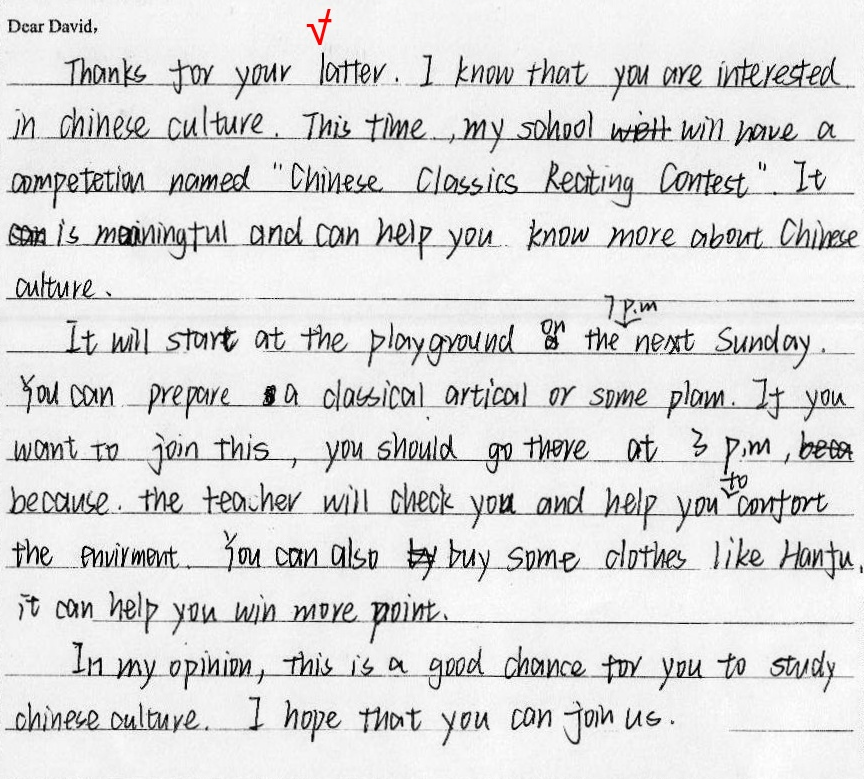 Dear David,
Thanks for your latter. I know that you are interested
in chinese culture. This time, my school will have a
competetian named "Chinese Classics Reciting Contest". It
is meainingful and can help you know more about Chinese
culture.
7 p.m
It will start at the playground on the next Sunday.
You can prepare a classical artical or some plam. If you
want to join this, you should go there at 3 p.m,
because. the teacher will check you and help you to confort
the envirment. You can also buy some clothes like Hanfu,
it can help you win more point.
In my opinion, this is a good chance for you to study
chinese culture. I hope that you can join us.